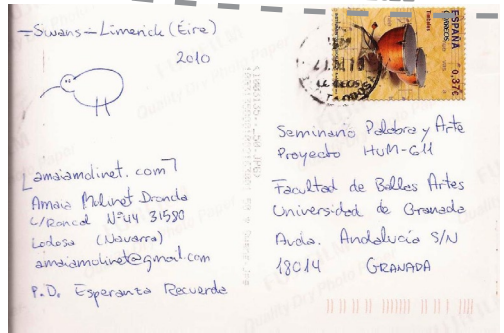 =Swans-Limerick (Eire)
2010
amaiamolinet.com
Amaia Molinet Dronda
C/Roncal Nº44 31580
Lodosa (Navarra)
amaiamolinet@gmail.com
P.D. Esperanza Recuerda
ESPAÑA
CORREOS
0,37€
Timbales
Seminario Palabra y Arte
Proyecto HUM-611
Facultad de Bellas Artes
Universidad de Granada
Avda. Andalucía S/N
18014 GRANADA